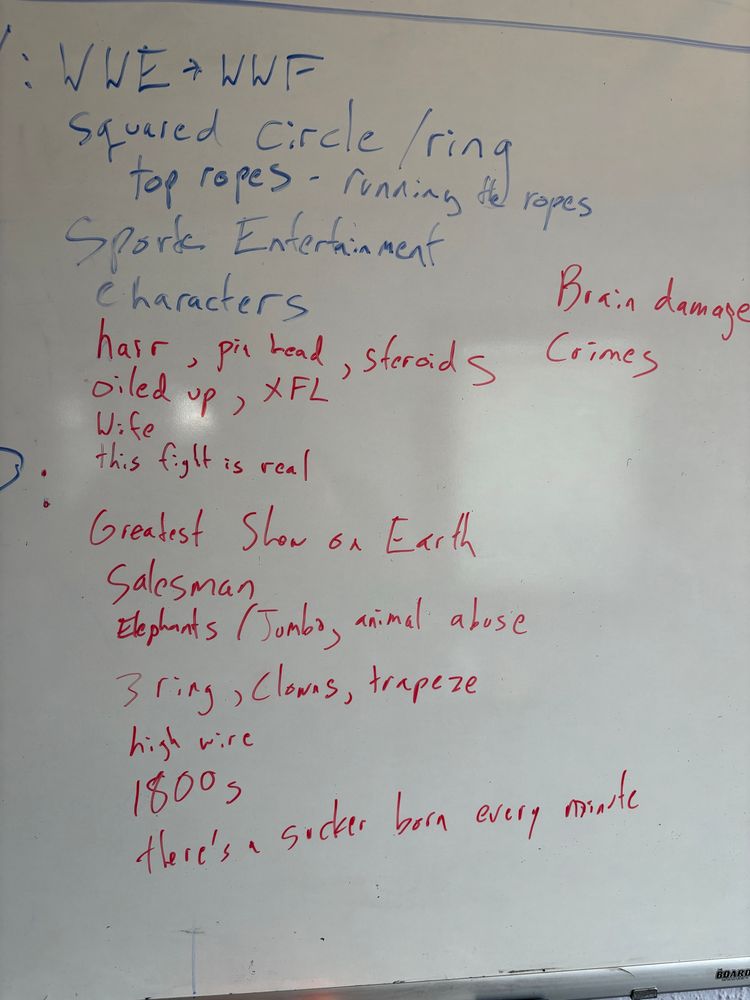 : WWE → WWF
Squared Circle / ring
top ropes - running the ropes
Sports Entertainment
Characters
Brain damage
hair, pin head, steroids
Crimes
oiled up, XFL
Wife
this fight is real
:
Greatest Show on Earth
Salesman
Elephants / Jumbo, animal abuse
3 ring, Clowns, trapeze
high wire
1800s
there's a sucker born every minute
BOARD